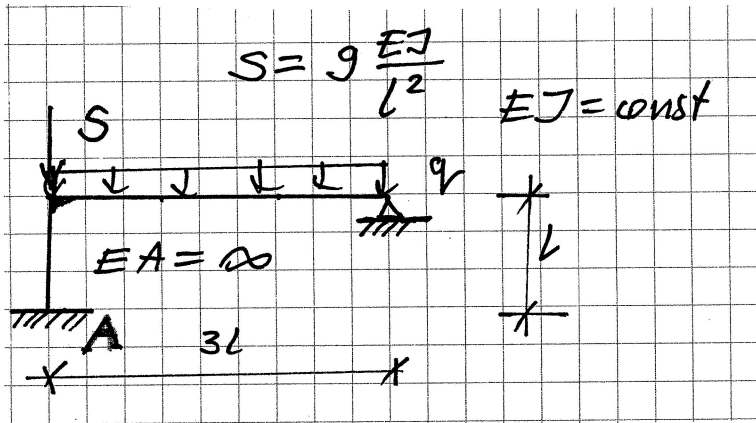 S = 9 EJ/l²
EJ = const
S
q
EA = ∞
l
A
3l